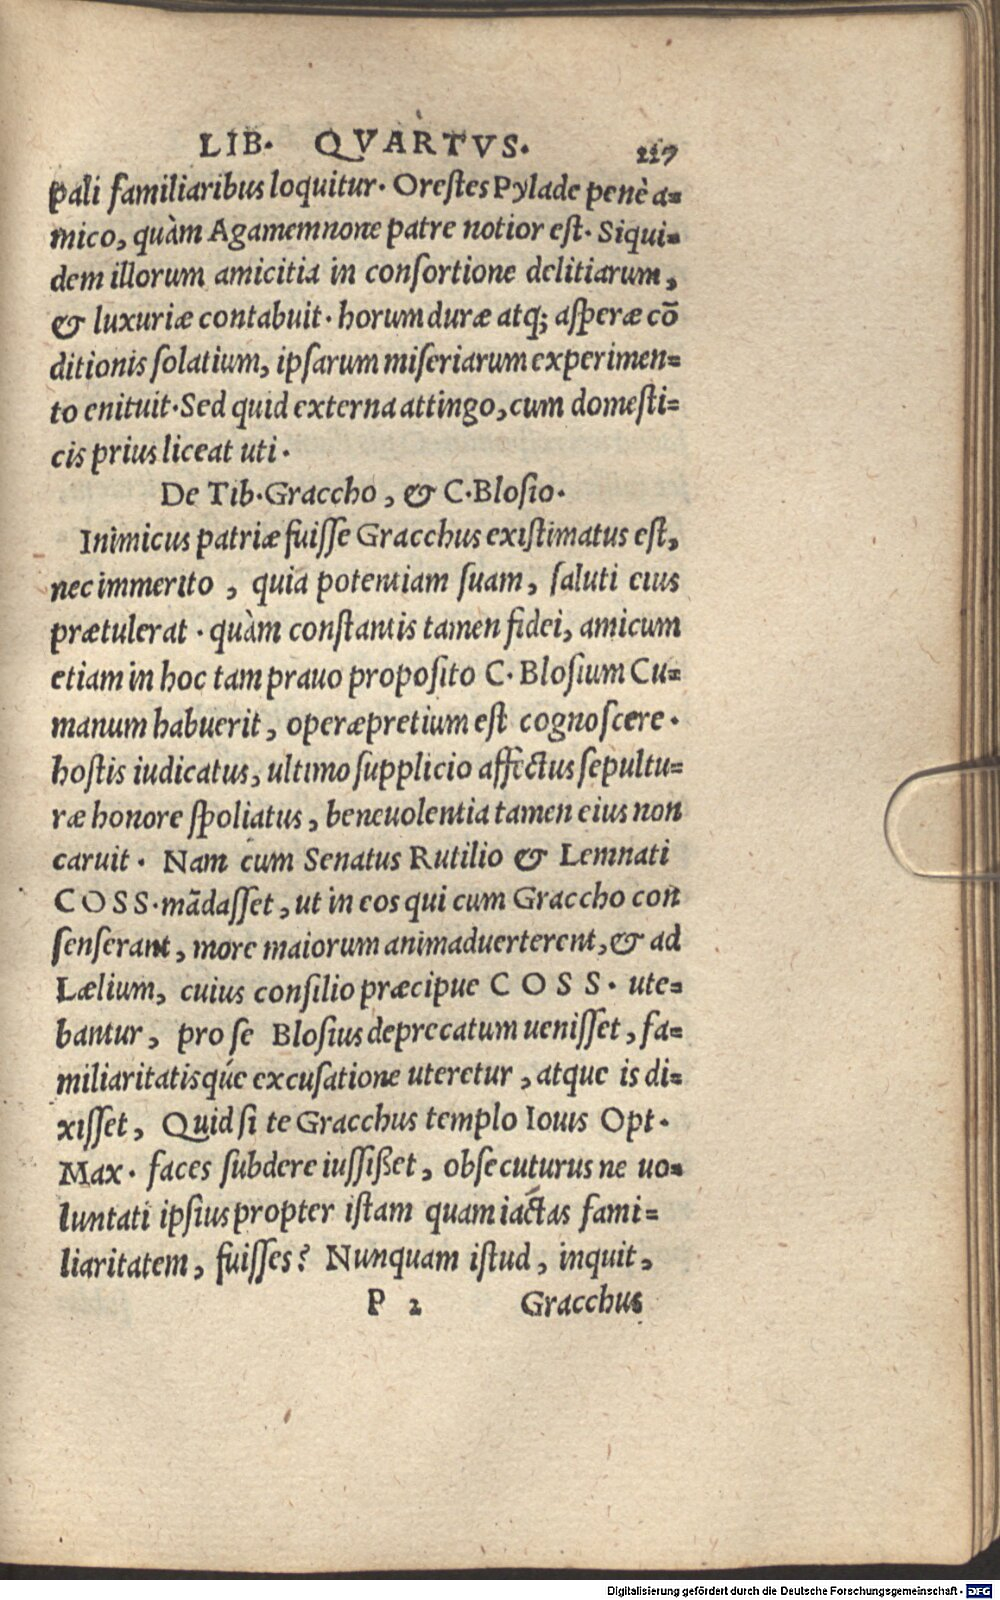 LIB. QVARTVS. 227
pali familiaribus loquitur. Orestes Pylade penè a=
mico, quàm Agamemnone patre notior est. Siqui=
dem illorum amicitia in consortione delitiarum,
& luxuriæ contabuit. horum duræ atq; asperæ cō
ditionis solatium, ipsarum miseriarum experimen=
to enituit. Sed quid externa attingo, cum domesti=
cis prius liceat uti.
De Tib. Graccho, & C. Blosio.
Inimicus patriæ fuisse Gracchus existimatus est,
nec immerito, quia potentiam suam, saluti eius
prætulerat. quàm constantis tamen fidei, amicum
etiam in hoc tam prauo proposito C. Blosium Cu=
manum habuerit, operæpretium est cognoscere.
hostis iudicatus, ultimo supplicio affectus sepultu=
ræ honore spoliatus, beneuolentia tamen eius non
caruit. Nam cum Senatus Rutilio & Lemnati
COSS. mādasset, ut in eos qui cum Graccho con
senserant, more maiorum animaduerterent, & ad
Lælium, cuius consilio præcipue COSS. ute=
bantur, pro se Blosius deprecatum uenisset, fa=
miliaritatisq́ue excusatione uteretur, atque is di=
xisset, Quid si te Gracchus templo Iouis Opt.
Max. faces subdere iussißet, obsecuturus ne uo=
luntati ipsius propter istam quam iactas fami=
liaritatem, fuisses? Nunquam istud, inquit,
P 2 Gracchus
Digitalisierung gefördert durch die Deutsche Forschungsgemeinschaft - DFG